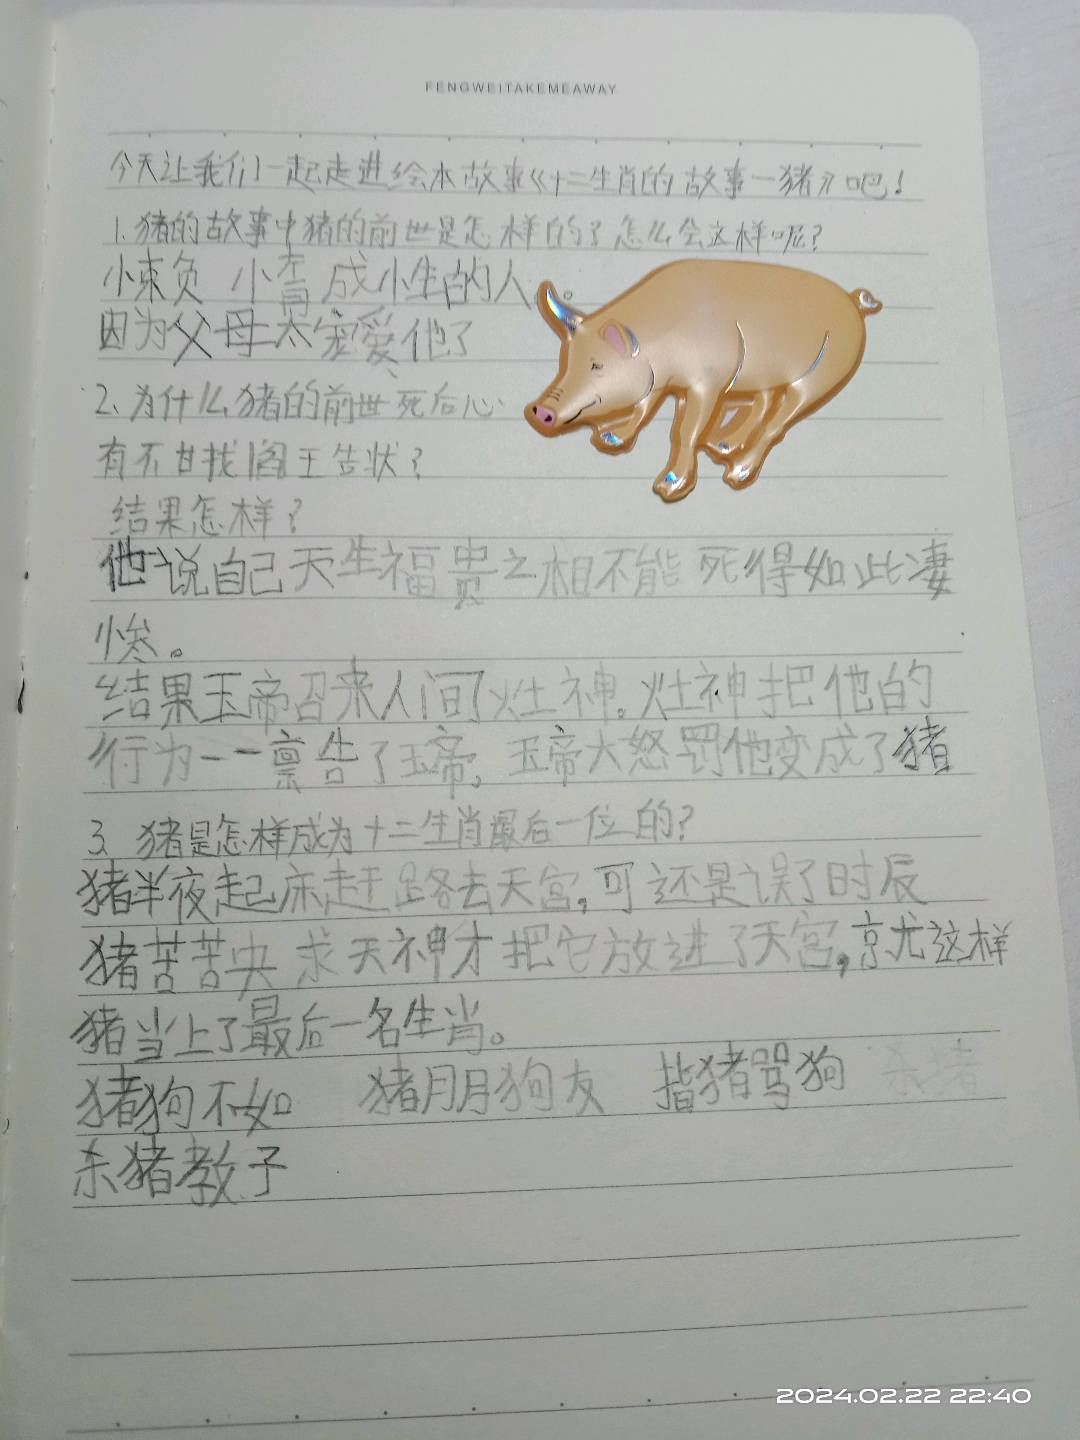 FENGWEITAKEMEAWAY
今天让我们一起走进绘本故事《十二生肖的故事一猪》吧!
1.猪的故事中猪的前世是怎样的?怎么会这样呢?
懒惰 情成小生的人。
因为父母太宠爱他了
2、为什么猪的前世死后心
有不甘找阎王告状?
结果怎样?
他说自己天生福贵之相不能死得如此凄
惨。
结果玉帝召来人间灶神。灶神把他的
行为一一禀告了玉帝,玉帝大怒罚他变成了猪
3、猪是怎样成为十二生肖最后一位的?
猪半夜起床赶路去天宫,可还是误了时辰
猪苦苦央求天神才把它放进了天宫,就这样
猪当上了最后一名生肖。
猪狗不如 猪朋狗友 指猪骂狗 杀猪
杀猪教子
2024.02.22 22:40